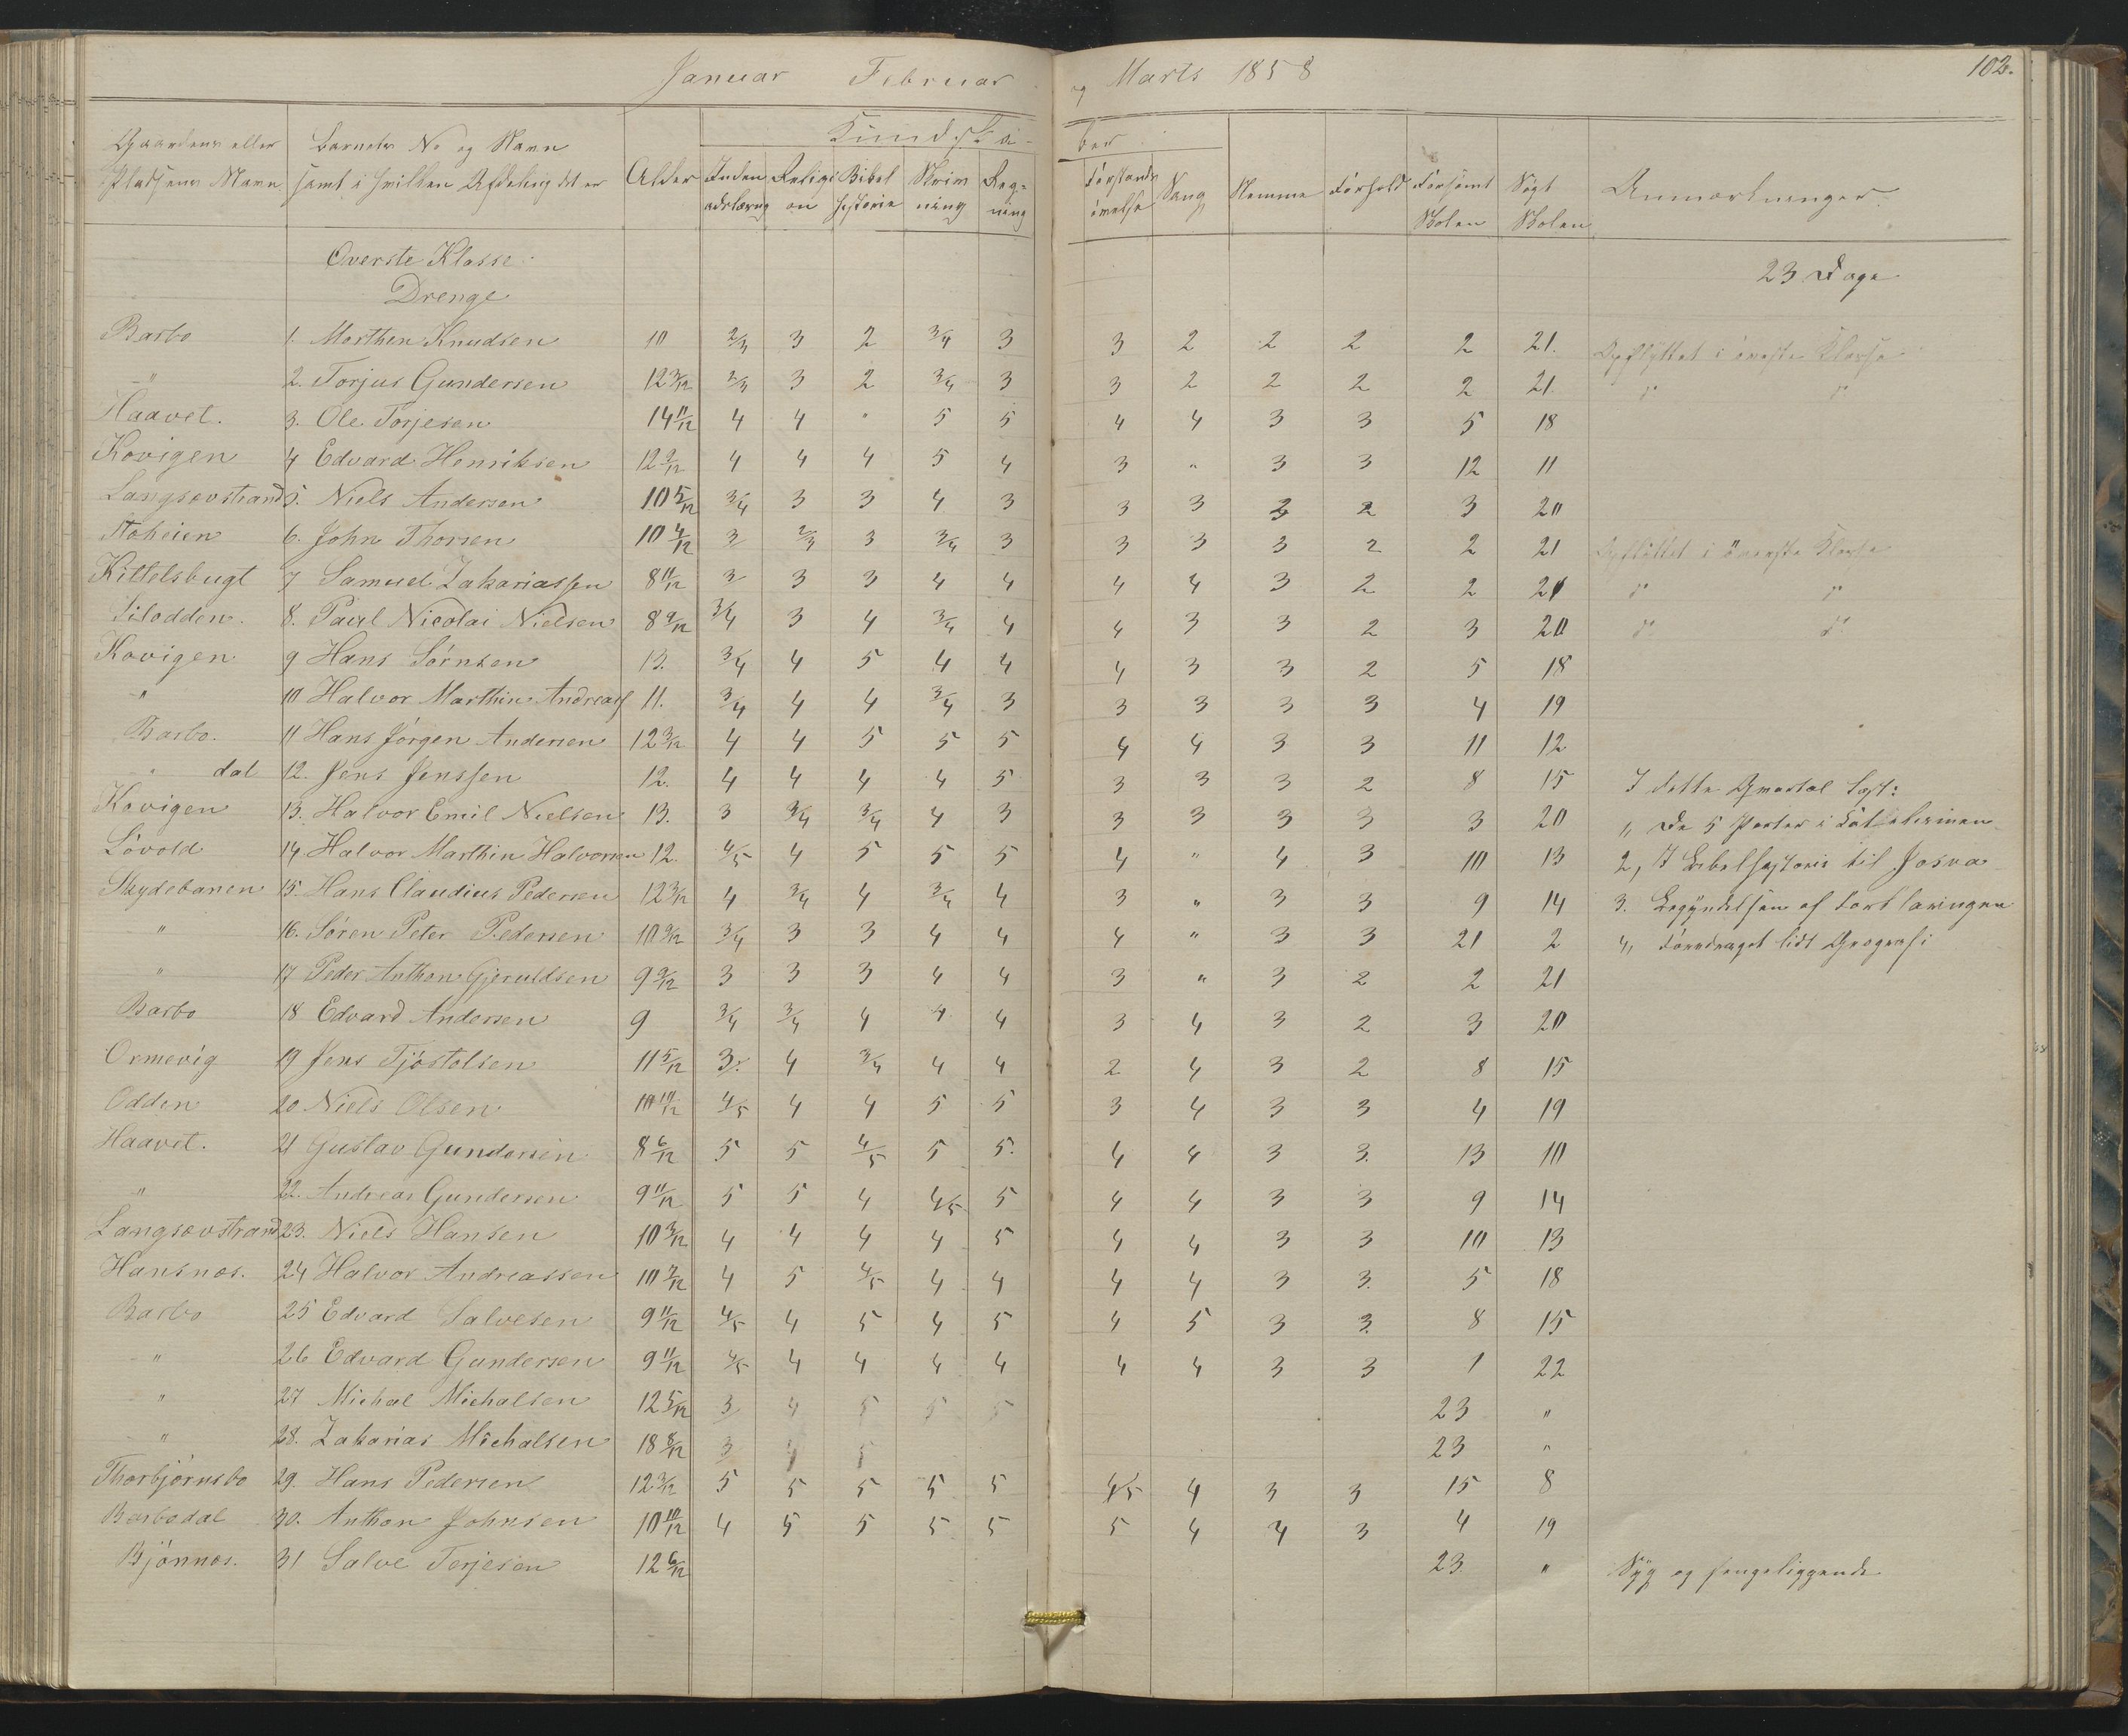 Januar Februar og Marts 1858 102.
Gaardens eller Pladsens Navn Barnets No og Navn samt i hvilken Afdeling det er Alder Kundska- ber Nemme Forhold Forsømt Skolen Søgt Skolen Anmærkninger.
Inden adslæsng Religi on Bibel historie Skriv ning Reg= ning Forstands øvelse Sang
Overste Klasse
Drenge 23 Dage
Barbo 1. Marthen Knudsen 10 2/3 3 2 3/4 3 3 2 2 2 2 21. Opflyttet i øverste Klasse
" 2. Torjus Gundersen 12 3/12 2/3 3 2 3/4 3 3 2 2 2 2 21. " "
Haavet. 3. Ole Torjesen 14 11/12 4 4 " 5 5 4 4 3 3 5 18
Kovigen 4 Edvard Henriksen 12 9/12 4 4 4 5 4 3 " 3 3 12 11
Langsævstrand 5. Niels Andersen 10 5/12 3/4 3 3 4 3 3 3 2 3 20
Stoheien 6. John Thorsen 10 4/12 3 2/3 3 3/4 3 3 3 3 2 2 21 Opflyttet i øverste Klasse
Kittelsbugt 7 Samuel Zakariassen 8 11/12 3 3 3 4 4 4 4 3 2 2 21 " "
Silodden. 8. Paul Nicolai Nielsen 8 9/12 3/4 3 4 3/4 4 4 3 3 2 3 20 " "
Kovigen 9 Hans Sørnsen 13. 3/4 4 5 4 4 4 3 3 2 5 18
" 10 Halvor Marthin Andreass 11. 3/4 4 4 3/4 3 3 3 3 3 4 19
Barbo. 11 Hans Jørgen Andersen 12 3/12 4 4 5 5 5 4 4 3 3 11 12
" dal 12. Jens Jenssen 12. 4 4 4 4 5 3 3 3 2 8 15 I dette Qvartal læst:
Kovigen 13. Halvor Emil Nielsen 13. 3 3/4 3/4 4 3 3 3 3 3 3 20 " De 5 Parter i Katekismen
Løvold 14 Halvor Marthin Halvorsen 12. 4/5 4 5 5 5 4 " 4 3 10 13 2, I Bibelhistorie til Josva
Skydebanen 15 Hans Claudius Pedersen 12 3/12 4 3/4 4 3/4 4 3 " 3 3 9 14 3. Begyndelsen af Forklaringen
" 16. Søren Peter Pedersen 10 9/12 3/4 3 3 4 4 4 " 3 3 21 2 4, Foredraget lidt Geografi
" 17 Peder Anthon Gjeruldsen 9 9/12 3 3 3 4 4 3 " 3 2 2 21
Barbo 18 Edvard Andersen 9 3/4 3/4 4 4 4 3 4 3 2 3 20
Ormevig 19 Jens Tjøstolsen 11 5/12 3. 4 3/4 4 4 2 4 3 2 8 15
Odden 20 Niels Olsen 10 10/12 4/5 4 4 5 5 3 4 3 3 4 19
Haavet. 21 Gustav Gundersen 8 6/12 5 5 4/5 5 5. 4 4 3 3. 13 10
" 22. Andreas Gundersen 9 11/12 5 5 4 4/5 5 4 4 3 3 9 14
Langsævstrand 23. Niels Hansen 10 3/12 4 4 4 4 5 4 4 3 3 10 13
Hansnæs. 24 Halvor Andreassen 10 7/12 4 5 4/5 4 4 4 4 3 3. 5 18
Barbo 25 Edvard Salvesen 9 11/12 4/5 4 5 4 5 4 5 3 3 8 15
" 26 Edvard Gundersen 9 11/12 4/5 4 4 4 4 4 4 3 3 1 22
" 27 Michal Michalsen 12 5/12 3 4 5 5 5 23 "
" 28. Zakarias Michalsen 18 8/12 3 23 "
Thorbjørnsbo 29. Hans Pedersen 12 3/12 5 5 5 5 5 4/5 4 3 3 15 8
Barbodal 30. Anthon Johnsen 10 10/12 4 5 5 5 5 5 4 4 3 4 19
Bjønnes. 31 Salve Terjesen 12 6/12 23. " Syg og sengeliggende